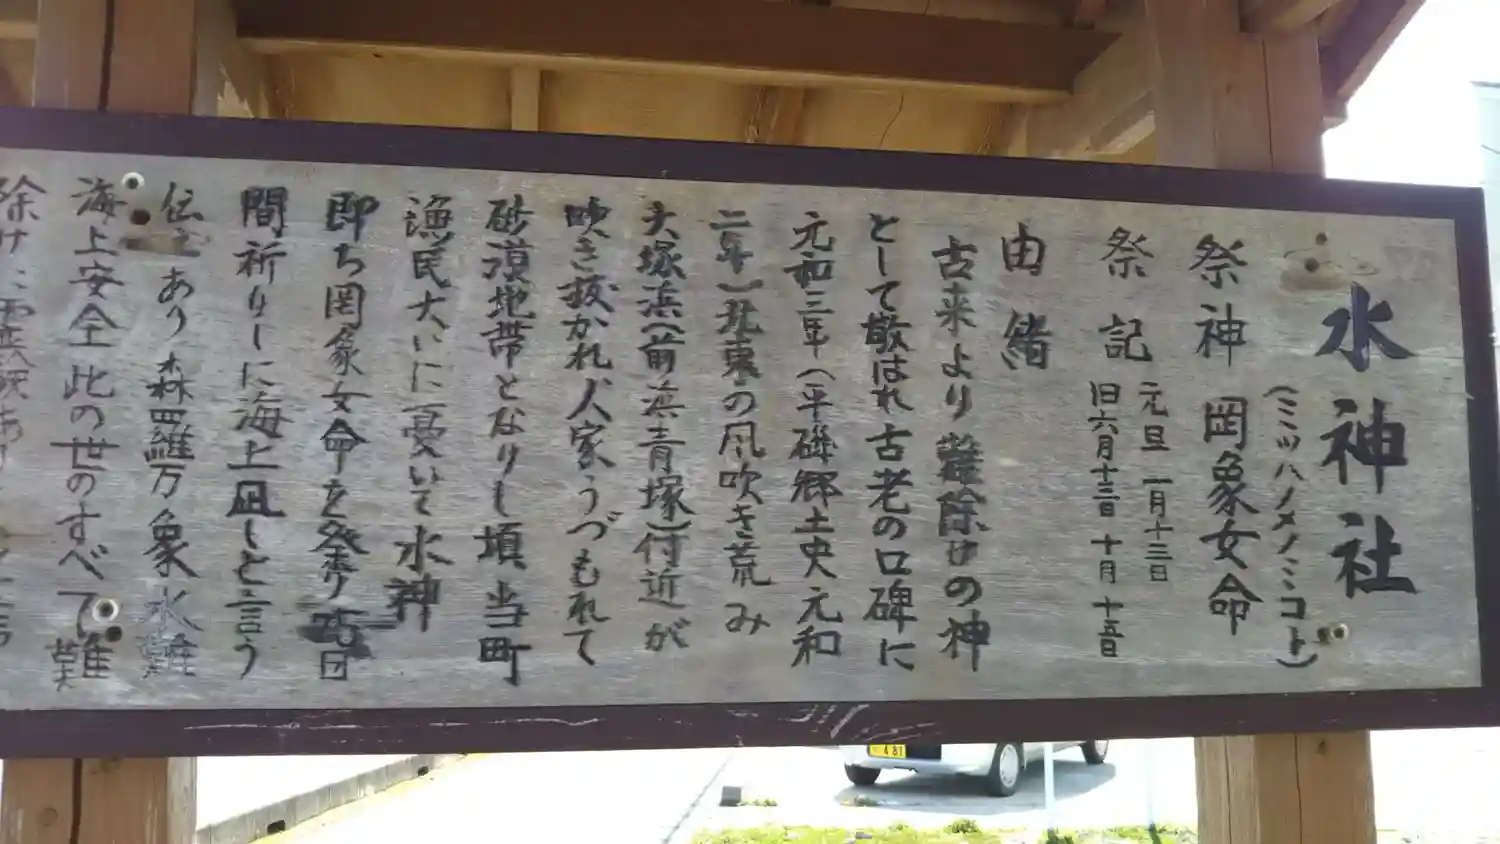 水神社
(ミミツハノメノミコト)
祭神 罔象女命
祭記 元旦 一月十三日
旧六月十三日 十月 十五日
由緒
古来より難除けの神
として敬はれ古老の口碑に
元和三年(平磯郷土史元和
二年)北東の風吹き荒み
大塚浜(前浜青塚)付近が
吹き抜かれ人家うづもれて
砂漠地帯となりし頃当町
漁民大いに憂いて水神
即ち罔象女命を祭り 日
間祈りしに海上凪しと言う
伝えあり森羅万象水難
海上安全此の世のすべて難
除けに霊験あ